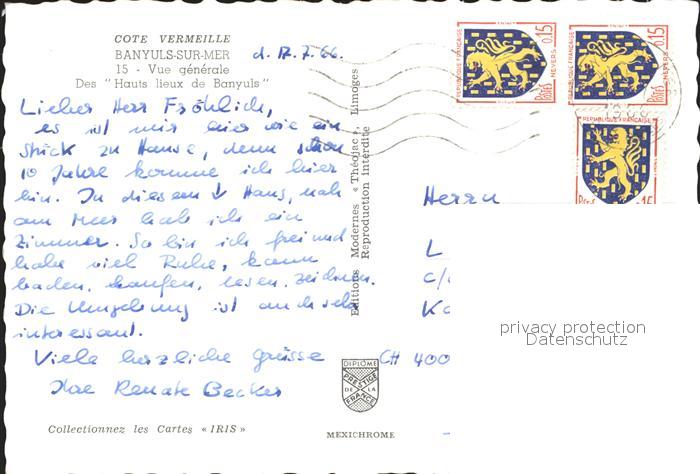 COTE VERMEILLE
BANYULS-SUR-MER d. 12.7.66.
15 - Vue générale
Des "Hauts lieux de Banyuls"
Lieber Herr Fröhlich,
es ist mir hier wie ein
Stück zu Hause, denn schon
10 Jahre komme ich hier
hin. In diesem ↓ Haus, nah
am Meer hab ich ein
Zimmer. So bin ich frei und
habe viel Ruhe, kann
baden, laufen, lesen, zeichnen.
Die Umgebung ist auch sehr
interessant.
Viele herzliche Grüsse
Ihre Renate Becker
Collectionnez les Cartes « IRIS »
Editions Modernes « Théojac », Limoges
Reproduction interdite
DIPLÔME
PRESTIGE
DE LA
FRANCE
MEXICHROME
REPUBLIQUE FRANÇAISE
0,15
NEVERS
Postes
REPUBLIQUE FRANÇAISE
0,15
NEVERS
Postes
REPUBLIQUE FRANÇAISE
Herrn
L
c/
Ko
CH 400
privacy protection
Datenschutz